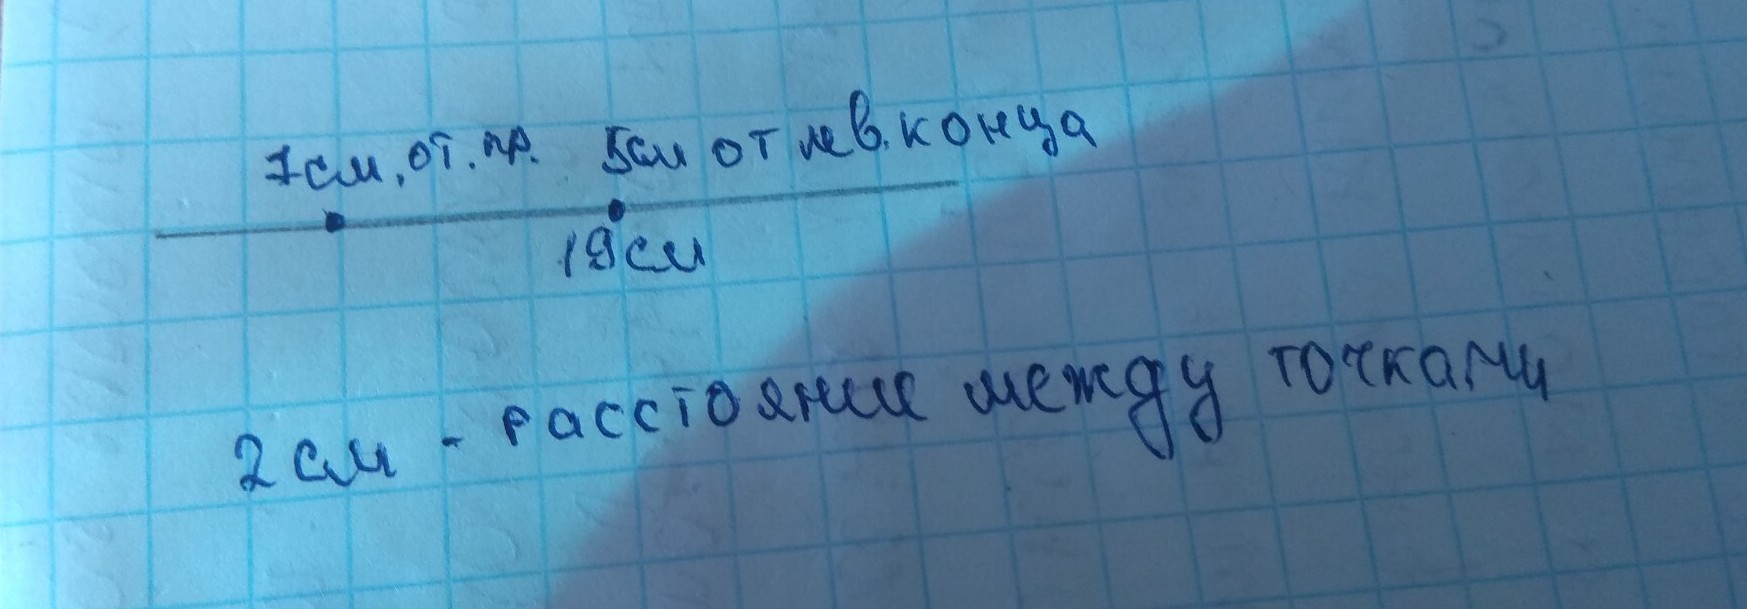 7см, от. пр. 5см от лев. конца
19см
2 см - расстояние между точками